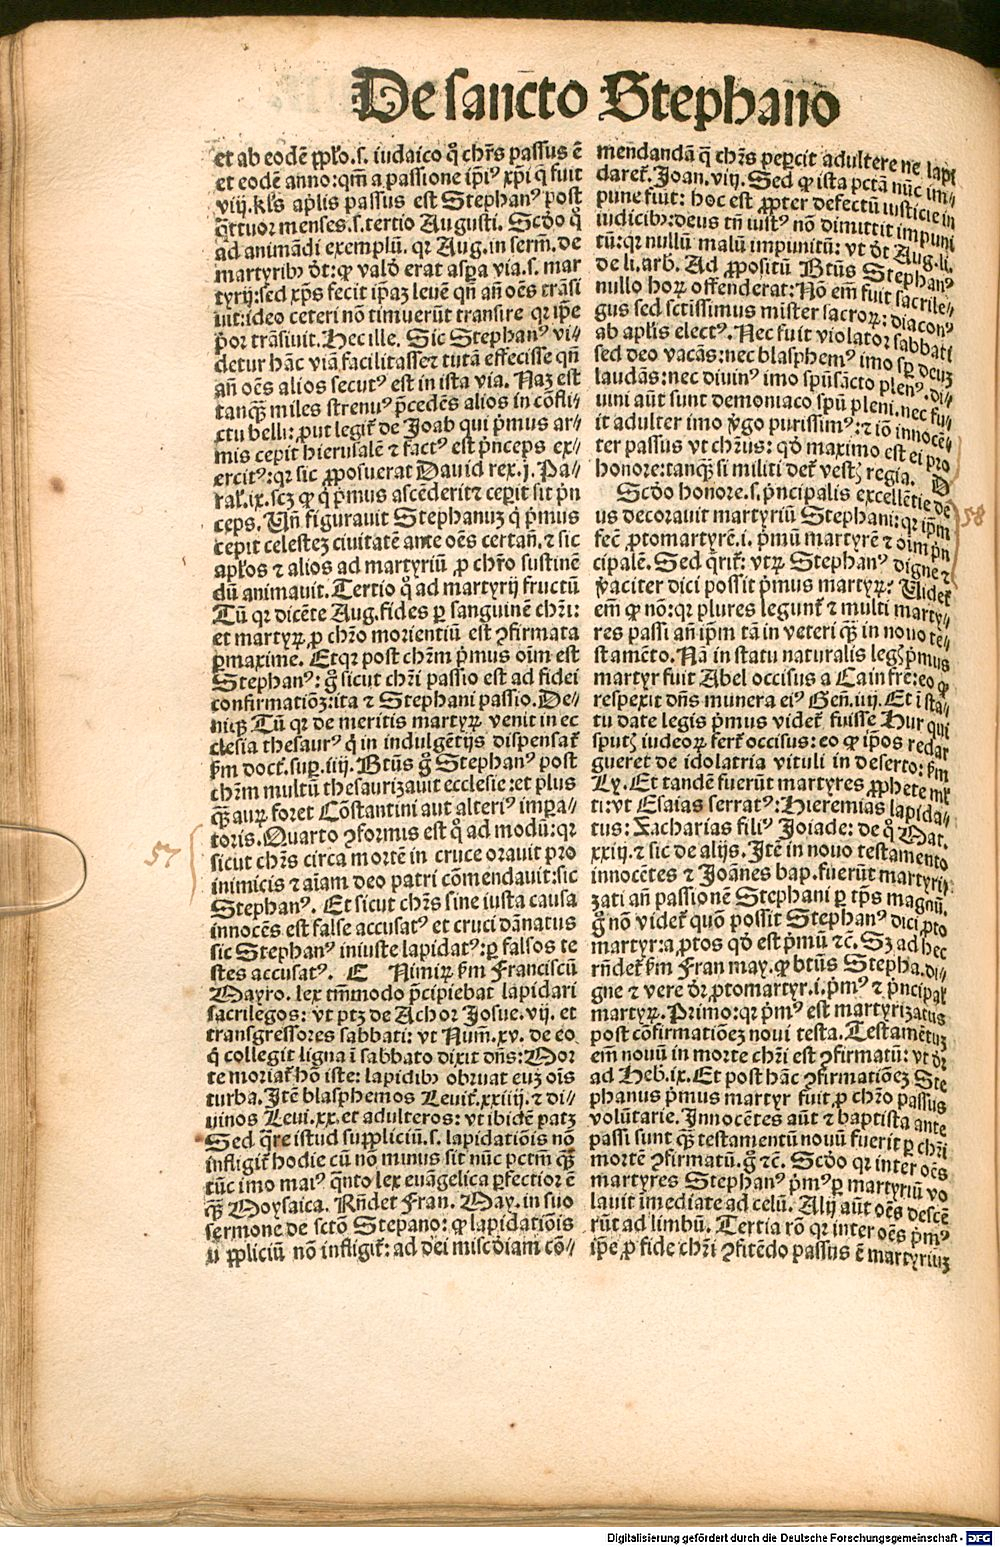 De sancto Stephano
et ab eodē ꝓpl'o.s. iudaico ꝙ chr̄s passus ē
et eodē anno: qm̄ a passione ip̄iꝰ xp̄i q̄ fuit
viij.kl's apl'is passus est Stephanꝰ post
q̄ttuor menses.s.tertio Augusti. Scd'o ꝙ
ad animādi exemplū. qr Aug. in serm̄. de
martyribꝫ d'r: ꝙ vald' erat aspa via.s. mar
tyrij: sed xp̄s fecit ip̄aꝫ leuē qn̄ an̄ oēs trāsi
uit: ideo ceteri nō timuerūt transire qr ip̄e
p̄or trāsiuit. Hec ille. Sic Stephanꝰ vi-
detur hāc viā facilitasse ⁊ tutā effecisse qn̄
an̄ oēs alios secutꝰ est in ista via. Naꝫ est
tanqꝫ miles strenuꝰ p̄cedēs alios in cōfli-
ctu belli: ꝓut legit' de Joab qui p̄mus ar-
mis cepit hierusalē ⁊ factꝰ est p̄nceps ex-
ercitꝰ: qr sic ꝓposuerat Dauid rex.j. Pa-
ral'.ix. scꝫ ꝙ q̄ p̄mus ascēderit ⁊ ceperit sit p̄n
ceps. Vn̄ figurauit Stephanuꝫ q̄ p̄mus
cepit celesteꝫ ciuitatē ante oēs certan̄. ⁊ sic
apl'os ⁊ alios ad martyriū ꝓ chr̄o sustinē
dū animauit. Tertio ꝙ ad martyrij fructū
Tū qr dicēte Aug. fides ꝑ sanguinē chr̄i:
et martyꝝ ꝓ chr̄o morientiū est ꝯfirmata
ꝑmaxime. Et qr post chr̄m p̄mus oīm est
Stephanꝰ: gͦ sicut chr̄i passio est ad fidei
confirmatiōeꝫ: ita ⁊ Stephani passio. De-
niqꝫ Tū qr de meritis martyꝝ venit in ec
clesia thesaurꝰ q̄ in indulgētijs dispensat'
km̄ doct'. sup.iiij. Btūs gͦ Stephanꝰ post
chr̄m multū thesaurizauit ecclesie: et plus
qꝫ auꝝ foret Cōstantini aut alteriꝰ impa-
toris. Quarto ꝯformis est ꝙ ad modū: qr
sicut chr̄s circa mortē in cruce orauit pro
inimicis ⁊ aīam deo patri cōmendauit: sic
Stephanꝰ. Et sicut chr̄s sine iusta causa
innocēs est false accusatꝰ et cruci dānatus
sic Stephanꝰ iniuste lapidatꝰ: ꝑ falsos te
stes accusatꝰ. C Nimiꝝ km̄ Franciscū
Mayro. lex tm̄modo p̄cipiebat lapidari
sacrilegos: vt ptꝫ de Achor Josue. vij. et
transgressores sabbati: vt Num̄.xv. de eo
q̄ collegit ligna ī sabbato dixit dn̄s: Mor
te moriat' hō iste: lapidibꝫ obruat euꝫ oīs
turba. Itē blasphemos Leuit'.xxiiij. ⁊ di-
uinos Leui.xx. et adulteros: vt ibidē patꝫ
Sed q̄re istud suppliciū.s. lapidatiōis nō
infligit' hodie cū nō minus sit nūc pctm̄ qꝫ
tūc imo maiꝰ q̄nto lex euāgelica ꝑfectior ē
qꝫ Moysaica. Rn̄det Fran. May. in suo
sermone de sctō Stepano: ꝙ lapidatiōis
u ppliciū nō infligit': ad dei misc'diam cō-
mendandā q̄ chr̄s pepercit adultere ne lapi
daret'. Joan. viij. Sed ꝙ ista pctā nūc im-
pune fiūt: hoc est ꝓpter defectū iusticie in
iudicibꝫ: deus tn̄ iustꝰ nō dimittit impuni
tū: qr nullū malū impunitū: vt d'r Aug. li.
de li. arb. Ad ꝓpositū Btūs Stephanꝰ
nullo hoꝝ offenderat: Nō em̄ fuit sacrile-
gus sed sctīssimus mister sacroꝝ: diaconꝰ
ab apl'is electꝰ. Nec fuit violator sabbati
sed deo vacās: nec blasphemꝰ imo sꝑ deuꝫ
laudās: nec diuinꝰ imo spūsācto plenꝰ. di-
uini aūt sunt demoniaco spū pleni. nec fu-
it adulter imo v̓go purissimꝰ: ⁊ iō innocē-
ter passus vt chr̄us: qd' maximo est ei pro
honore: tanqꝫ si militi det' vestꝭ regia. D
Scd'o honore.s. p̄ncipalis excellētie de
us decorauit martyriū Stephani: qr ip̄m
fec̄ ꝓtomartyrē.i. p̄mū martyrē ⁊ oīm p̄n
cipalē. Sed q̄rit': vtꝝ Stephanꝰ digne ⁊
v̓aciter dici possit p̄mus martyꝝ: Videt'
em̄ ꝙ nō: qr plures legunt' ⁊ multi marty-
res passi an̄ ip̄m tā in veteri qꝫ in nouo te-
stamēto. Nā in statu naturalis legꝭ p̄mus
martyr fuit Abel occisus a Cain fr̄e: eo ꝙ
respexit dn̄s munera eiꝰ Gen̄. iiij. Et ī sta-
tu date legis p̄mus videt' fuisse Hur qui
sputꝭ iudeoꝝ fert' occisus: eo ꝙ ip̄os redar
gueret de idolatria vituli in deserto: km̄
Ly. Et tandē fuerūt martyres ꝓphete ml'
ti: vt Esaias serratꝰ: Hieremias lapida-
tus: Zacharias filiꝰ Joiade: de q̄ Mat.
xxiij. ⁊ sic de alijs. Itē in nouo testamento
innocētes ⁊ Joānes bap. fuerūt martyri-
zati an̄ passionē Stephani ꝑ tp̄s magnū.
gͦ nō videt' quō possit Stephanꝰ dici ꝓto
martyr: a ꝓtos qd' est p̄mū ⁊c̄. Sꝫ ad hec
rn̄det' km̄ Fran may. ꝙ btūs Stepha. di-
gne ⁊ vere d'r ꝓtomartyr.i. p̄mꝰ ⁊ p̄ncipal'
martyꝝ. Primo: qr p̄mꝰ est martyrizatus
post cōfirmatiōeꝫ noui testa. Testamētuꝫ
em̄ nouū in morte chr̄i est ꝯfirmatū: vt d'r
ad Heb.ix. Et post hāc ꝯfirmatiōeꝫ Ste
phanus p̄mus martyr fuit ꝓ chr̄o passus
volūtarie. Innocētes aūt ⁊ baptista ante
passi sunt qꝫ testamentū nouū fuerit ꝑ chr̄i
mortē ꝯfirmatū. gͦ ⁊c̄. Scd'o qr inter oēs
martyres Stephanꝰ p̄mꝰ ꝑ martyriū vo
lauit īmediate ad celū. Alij aūt oēs descē
rūt ad limbū. Tertia rō qr inter oēs p̄mꝰ
ip̄e ꝓ fide chr̄i ꝯfitēdo passus ē martyriuꝫ
57
58
Digitalisierung gefördert durch die Deutsche Forschungsgemeinschaft - DFG